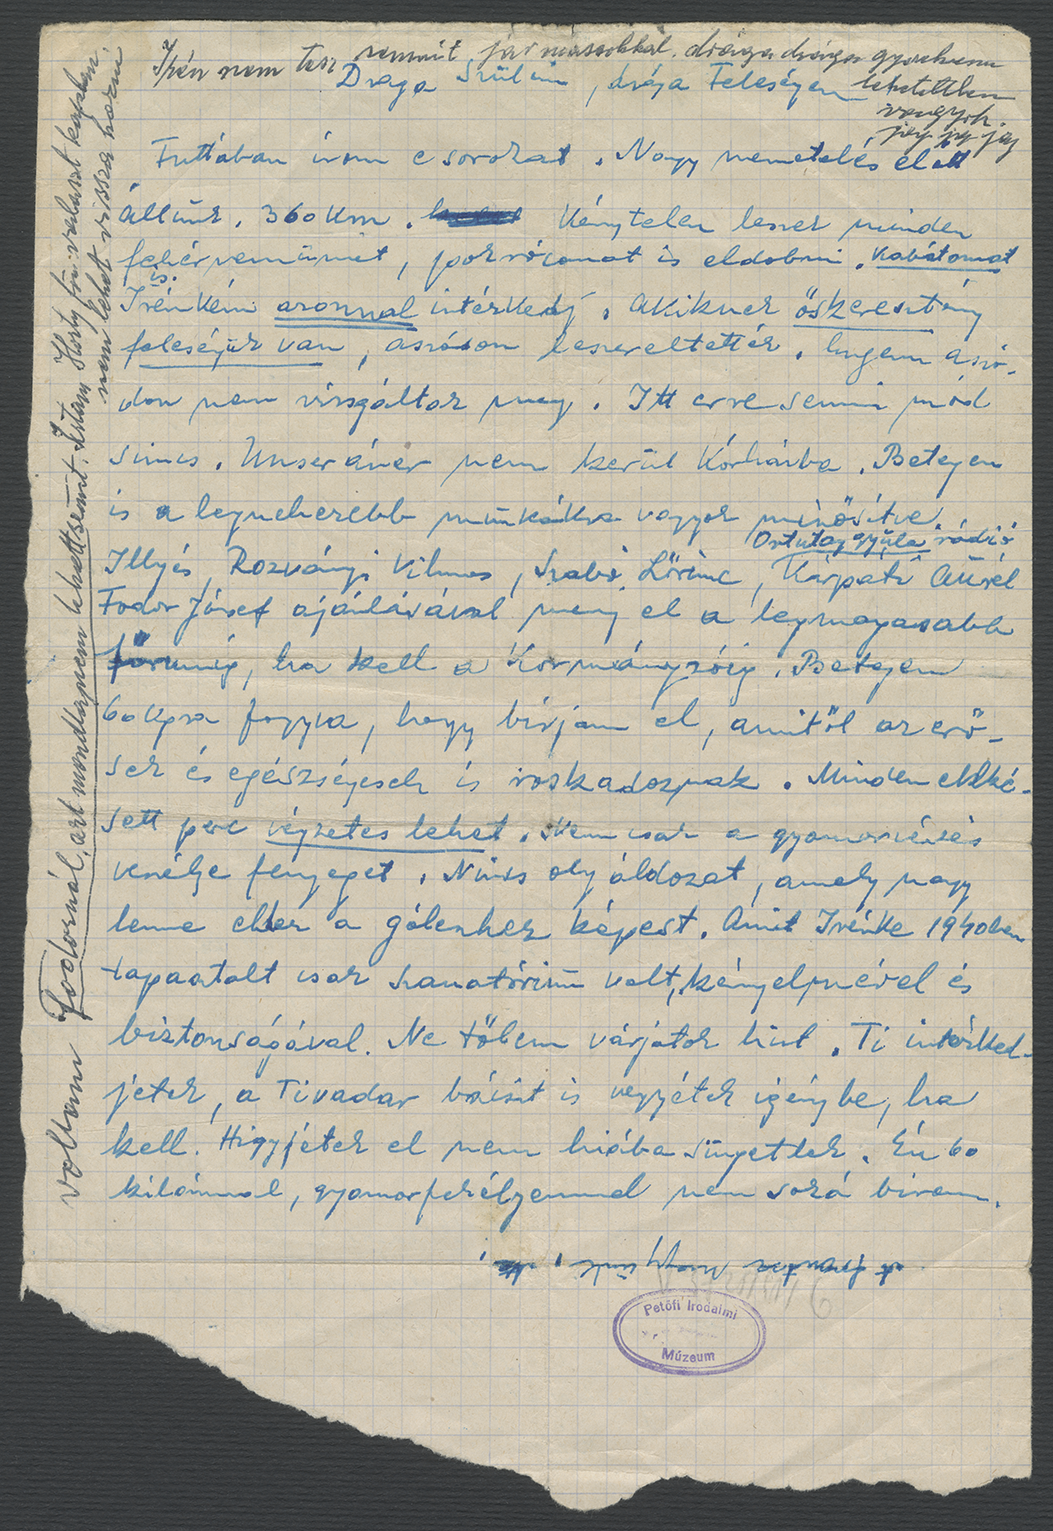 Irén nem tesz semmit jár masokkal. drága drága gyerekem
lehetetlen
vagyok.
jaj jaj jaj
Draga Szüleim, drága Feleségem
Futtában irom e sorokat. Nagy menetelés elött
állunk. 360 Km. Kénytelen leszek minden
fehérnemümet, pokrócomat is eldobni. Kabátomat
is.
Irénkém azonnal intézkedj. Akiknek őskeresztény
feleségük van, aszódon leszereltették. Engem aszó-
don nem vizsgáltak meg. Itt erre semmi mód
sincs. Munkaszolgálatos nem kerül Kórházba. Betegen
is a legnehezebb munkákra vagyok minősítve.
Ortutay gyula rádió
Illyés, Rozványi Vilmos, Szabó Lőrinc, Kárpáti Aurél
Fodor József ajánlásával menj el a legmagasabb
fórumig, ha kell a Kormányzóig. Betegen
60 Kgra fogyva, hogy birjam el, amitől az erő-
sek és egészségesek is roskadoznak. Minden elké-
sett perc végzetes lehet. Nemcsak a gyomorvérzés
veszélye fenyeget. Nincs oly áldozat, amely nagy
lenne ehhez a gálenhez képest. Amit Irénke 1940ben
tapasztalt csak szanatórium volt, kényelmével és
biztonságával. Ne tőlem várjatok hirt. Ti intézked-
jetek, a Tivadar bácsit is vegyétek igénybe, ha
kell. Higyjétek el nem hiába sürgetlek. Én 60
kilómmal, gyomorfekélyemmel nem soká birom.
voltam Fodornál, azt mondta nem lehet semmit. Irtam Horthy főn választ kaptam.
nem lehet vissza hozni.
Petőfi Irodalmi
Múzeum